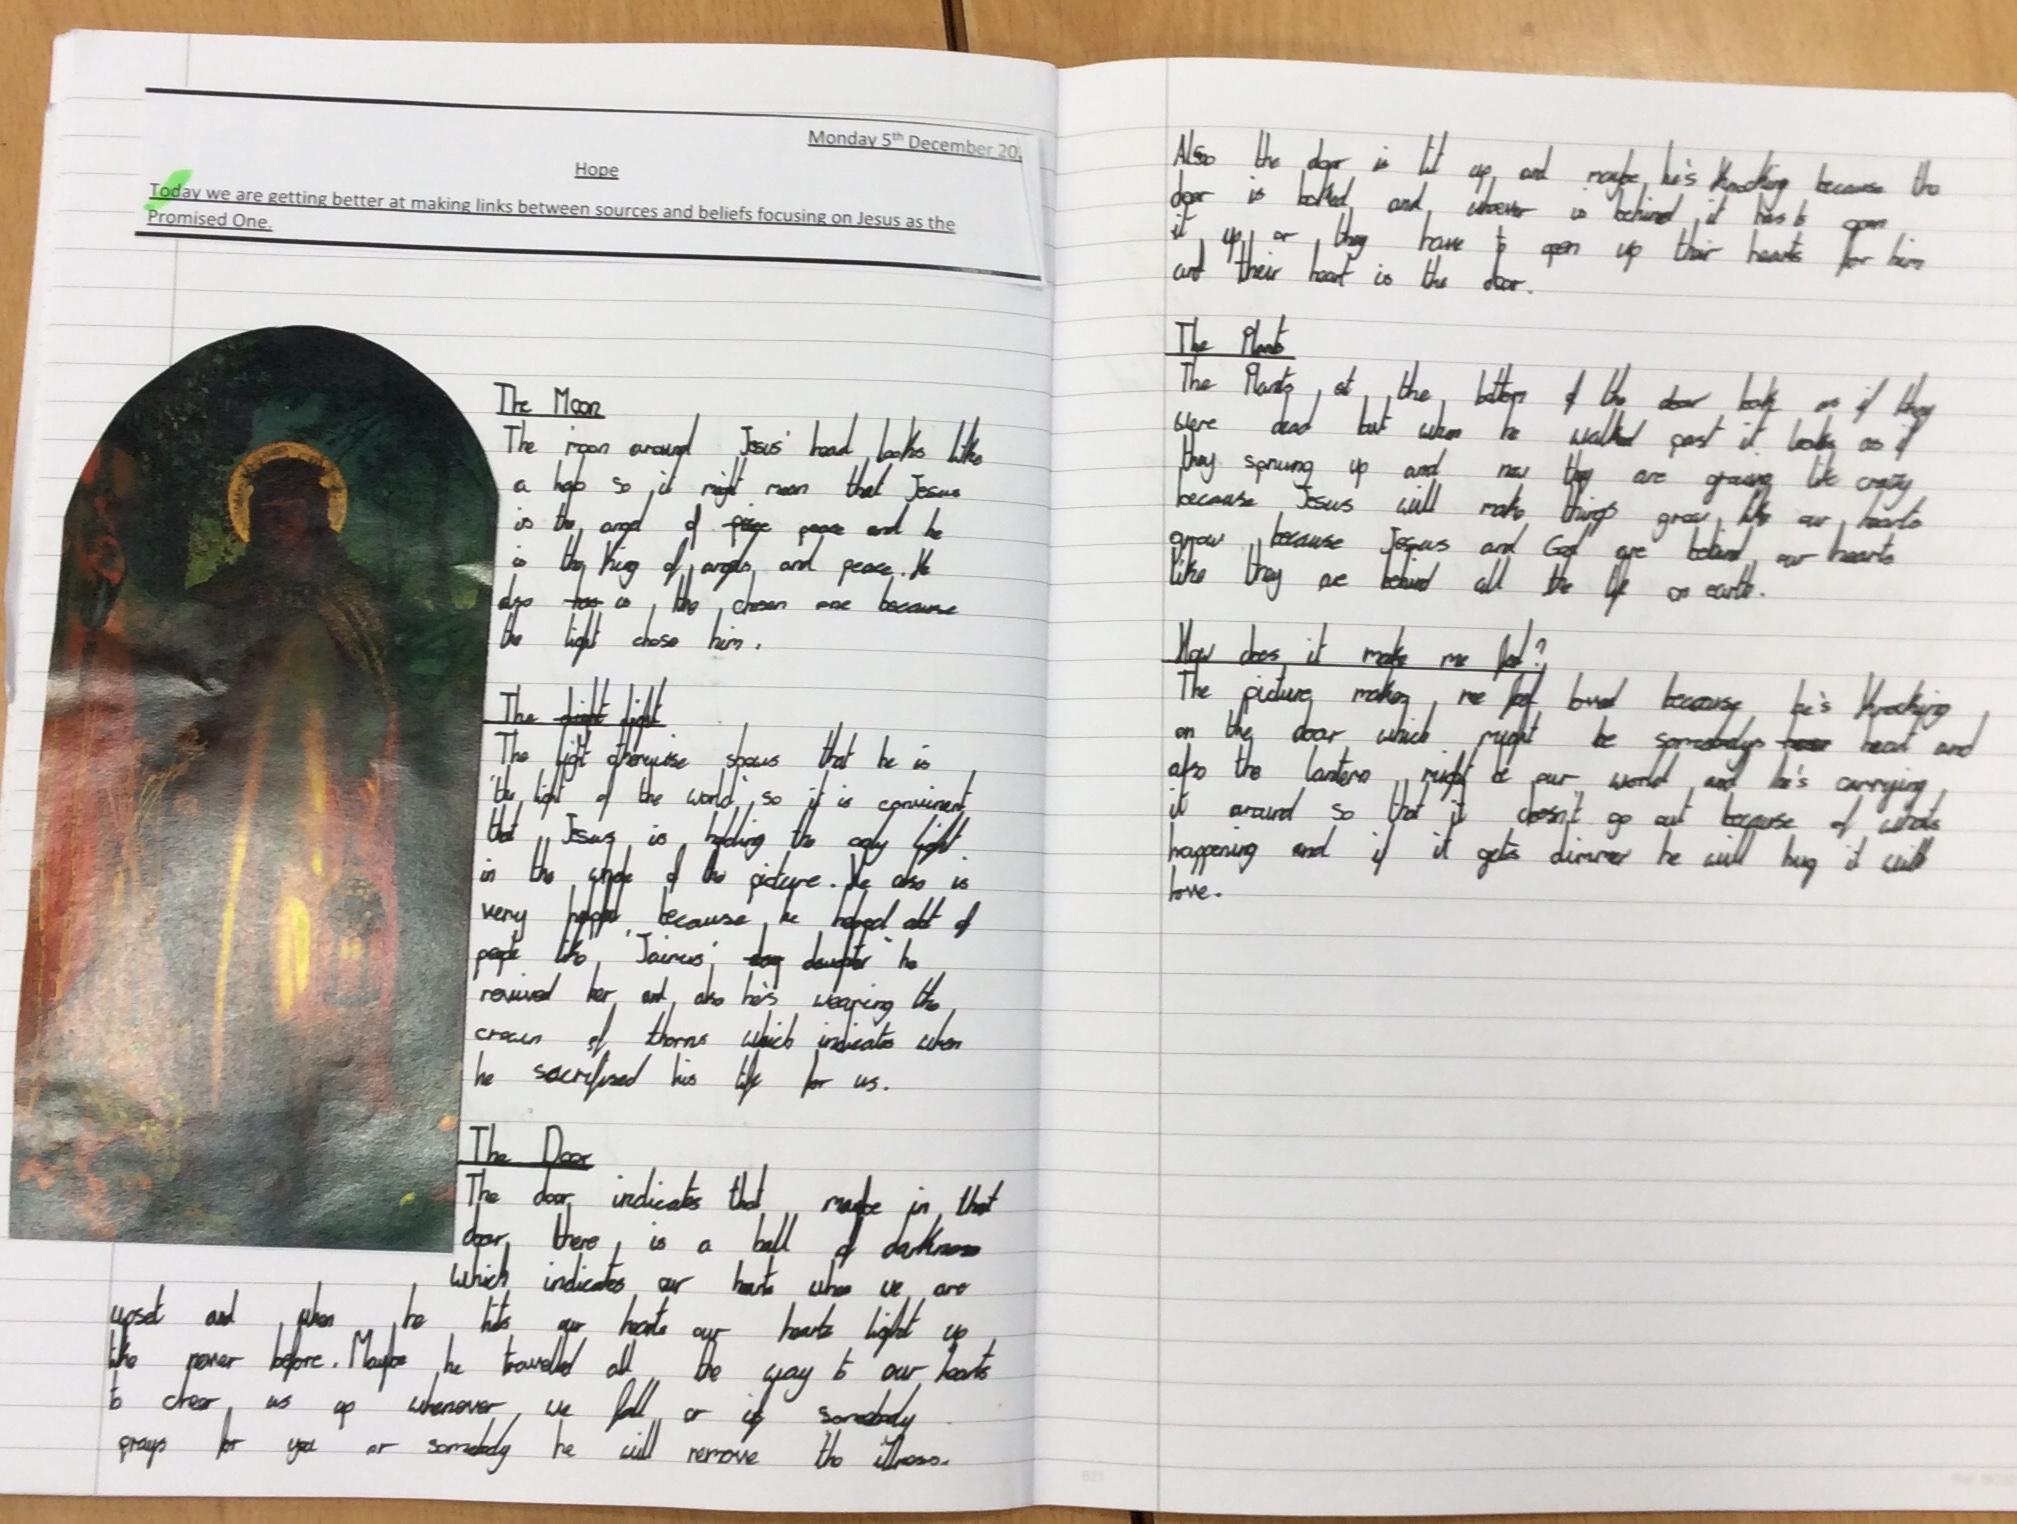 Monday 5th December 20
Hope
Today we are getting better at making links between sources and beliefs focusing on Jesus as the
Promised One.
The Moon
The moon around Jesus' head looks like
a halo so it might mean that Jesus
is the angel of peace and he
is the King of angels and peace. He
also is the chosen one because
the light chose him.
The light
The light otherwise shows that he is
'the light of the world' so it is convinent
that Jesus is holding the only light
in the whole of the picture. He also is
very helpful because he helped alot of
people like 'Jairus' daughter' he
revived her and also he's wearing the
crown of thorns which indicates when
he sacrifised his life for us.
The Door
The door indicates that maybe in that
door there is a ball of darkness
which indicates our hearts when we are
upset and when he hits our hearts our hearts light up
like never before. Maybe he travelled all the way to our hearts
to cheer us up whenever we fall or if somebody
prays for you or somebody he will remove the illness.
Also the door is lit up and maybe he's Knocking because the
door is bolted and whoever is behind it has to open
it up or they have to open up their hearts for him
and their heart is the door.
The Plants
The Plants at the bottom of the door look as if they
were dead but when he walked past it looks as if
they sprung up and now they are growing like crazy
because Jesus will make things grow like our hearts
grow because Jesus and God are behind our hearts
like they are behind all the life on earth.
How does it make me feel?
The picture makes me feel loved because he's Knocking
on the door which might be somebodys heart and
also the lantern might be our world and he's carrying
it around so that it doesn't go out because of whats
happening and if it gets dimmer he will hug it with
love.